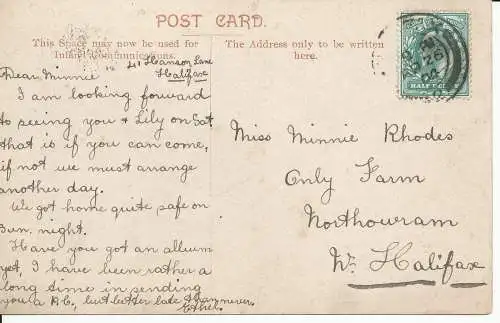 POST CARD.
This Space may now be used for
Inland Communications.
The Address only to be written
here.
41 Hanson Lane
Halifax
Dear Minnie
I am looking forward
to seeing you & Lily on Sat
that is if you can come,
if not we must arrange
another day.
We got home quite safe on
Sun. night.
Have you got an album
yet, I have been rather a
long time in sending
you a P.C., but better late than never.
Ethel.
Miss Minnie Rhodes
Only Farm
Northowram
Nr Halifax
HALF PENNY
26
04